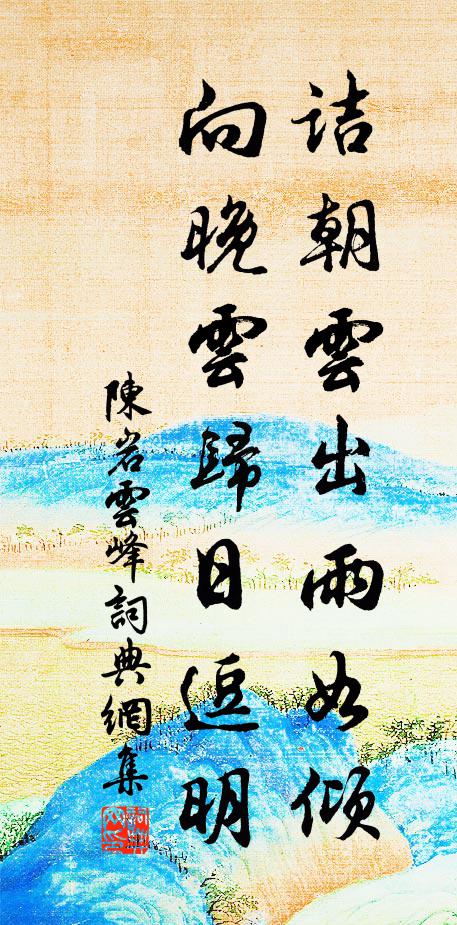 詰朝雲出雨如傾
向晚雲歸日逗明
陳岩雲峰詞典網集